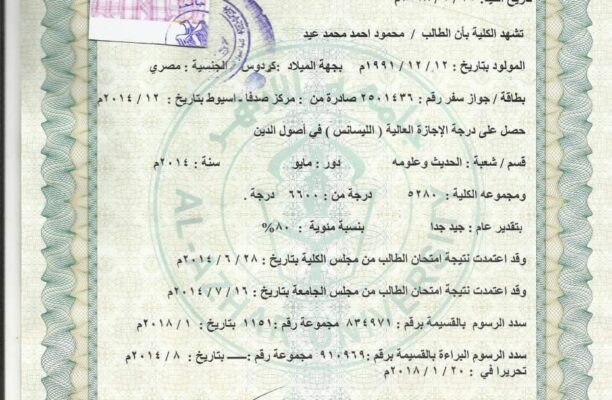 تشهد الكلية بأن الطالب / محمود احمد محمد عيد
المولود بتاريخ : ١٢ / ١٢ / ١٩٩١م بجهة الميلاد : كردوس الجنسية : مصري
بطاقة / جواز سفر رقم : ٢٥٠١٤٣٦ صادرة من : مركز صدفا - اسيوط بتاريخ : ١٢ / ٢٠١٤م
حصل على درجة الإجازة العالية ( الليسانس ) في أصول الدين
قسم / شعبة : الحديث وعلومه دور : مايو سنة : ٢٠١٤م
ومجموعه الكلية : ٥٢٨٠ درجة من : ٦٦٠٠ درجة .
بتقدير عام : جيد جدا بنسبة مئوية : ٨٠%
وقد اعتمدت نتيجة امتحان الطالب من مجلس الكلية بتاريخ : ٢٨ / ٦ / ٢٠١٤م
وقد اعتمدت نتيجة امتحان الطالب من مجلس الجامعة بتاريخ : ١٦ / ٧ / ٢٠١٤م
سدد الرسوم بالقسيمة برقم : ٨٣٤٩٧١ مجموعة رقم : ١١٥١ بتاريخ : ١ / ٢٠١٨م
سدد الرسوم البراءة بالقسيمة برقم : ٩١٠٩٦٩ مجموعة رقم : ــــ بتاريخ : ٨ / ٢٠١٤م
تحريرا في : ٢٠ / ١ / ٢٠١٨م
AL-AZHAR UNIVERSITY